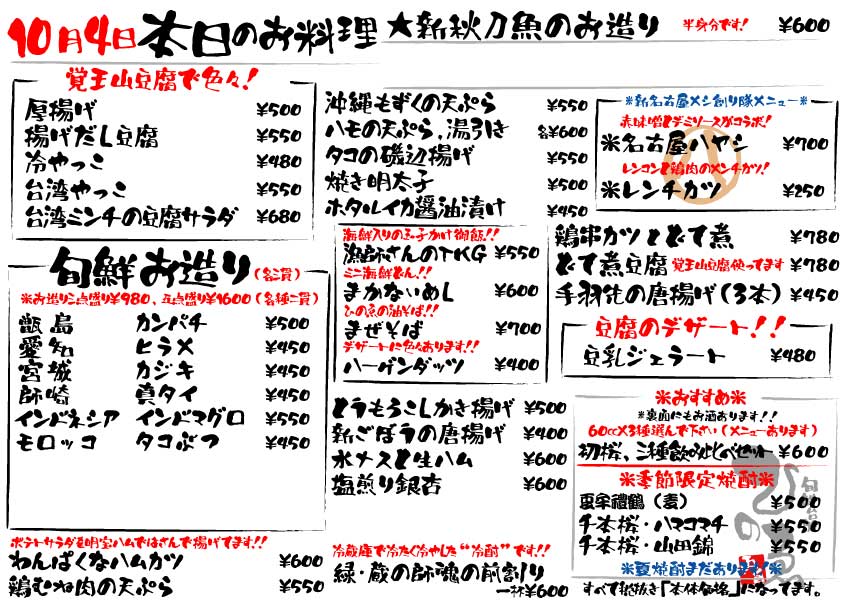 10月4日 本日のお料理 ★新秋刀魚のお造り 半身分です! ¥600
覚王山豆腐で色々!
厚揚げ ¥500
揚げだし豆腐 ¥550
冷やっこ ¥480
台湾やっこ ¥550
台湾ミンチの豆腐サラダ ¥680
旬鮮お造り(各二貫)
※お造り三点盛り¥980、五点盛り¥1600(各種二貫)
甑島 カンパチ ¥500
愛知 ヒラメ ¥450
宮城 カジキ ¥450
師崎 真タイ ¥450
インドネシア インドマグロ ¥550
モロッコ タコぶつ ¥450
ポテトサラダを明宝ハムではさんで揚げてます!!
わんぱくなハムカツ ¥600
鶏むね肉の天ぷら ¥550
沖縄もずくの天ぷら ¥550
ハモの天ぷら、湯引き 各¥600
タコの磯辺揚げ ¥550
焼き明太子 ¥500
ホタルイカ醤油漬け ¥450
海鮮入りの玉子かけ御飯!!
漁師さんのTKG ¥550
ミニ海鮮どん!!
まかないめし ¥600
ひの魚の油そば!!
まぜそば ¥700
デザートに色々あります!!
ハーゲンダッツ ¥400
とうもろこしかき揚げ ¥500
新ごぼうの唐揚げ ¥400
水ナスと生ハム ¥600
塩煎り銀杏 ¥600
冷蔵庫で冷たく冷やした“冷酎”です!!
緑・蔵の師魂の前割り
一杯¥600
※新名古屋メシ創り隊メニュー※
赤味噌とデミソースがコラボ!
※名古屋ハヤシ ¥700
レンコンと鶏肉のメンチカツ!
※レンチカツ ¥250
鶏串カツとどて煮 ¥780
どて煮豆腐 覚王山豆腐使ってます ¥780
手羽先の唐揚げ(3本) ¥450
豆腐のデザート!!
豆乳ジェラート ¥480
※おすすめ※
※裏面にもお酒あります!!
60cc×3種選んで下さい(メニューあります)
初桜、三種飲みくらべセット ¥600
※季節限定焼酎※
夏牢禮鶴(麦) ¥500
千本桜・ハマコマチ ¥550
千本桜・山田錦 ¥550
※夏焼酎まだあります!※
すべて税抜き「本体価格」になってます。